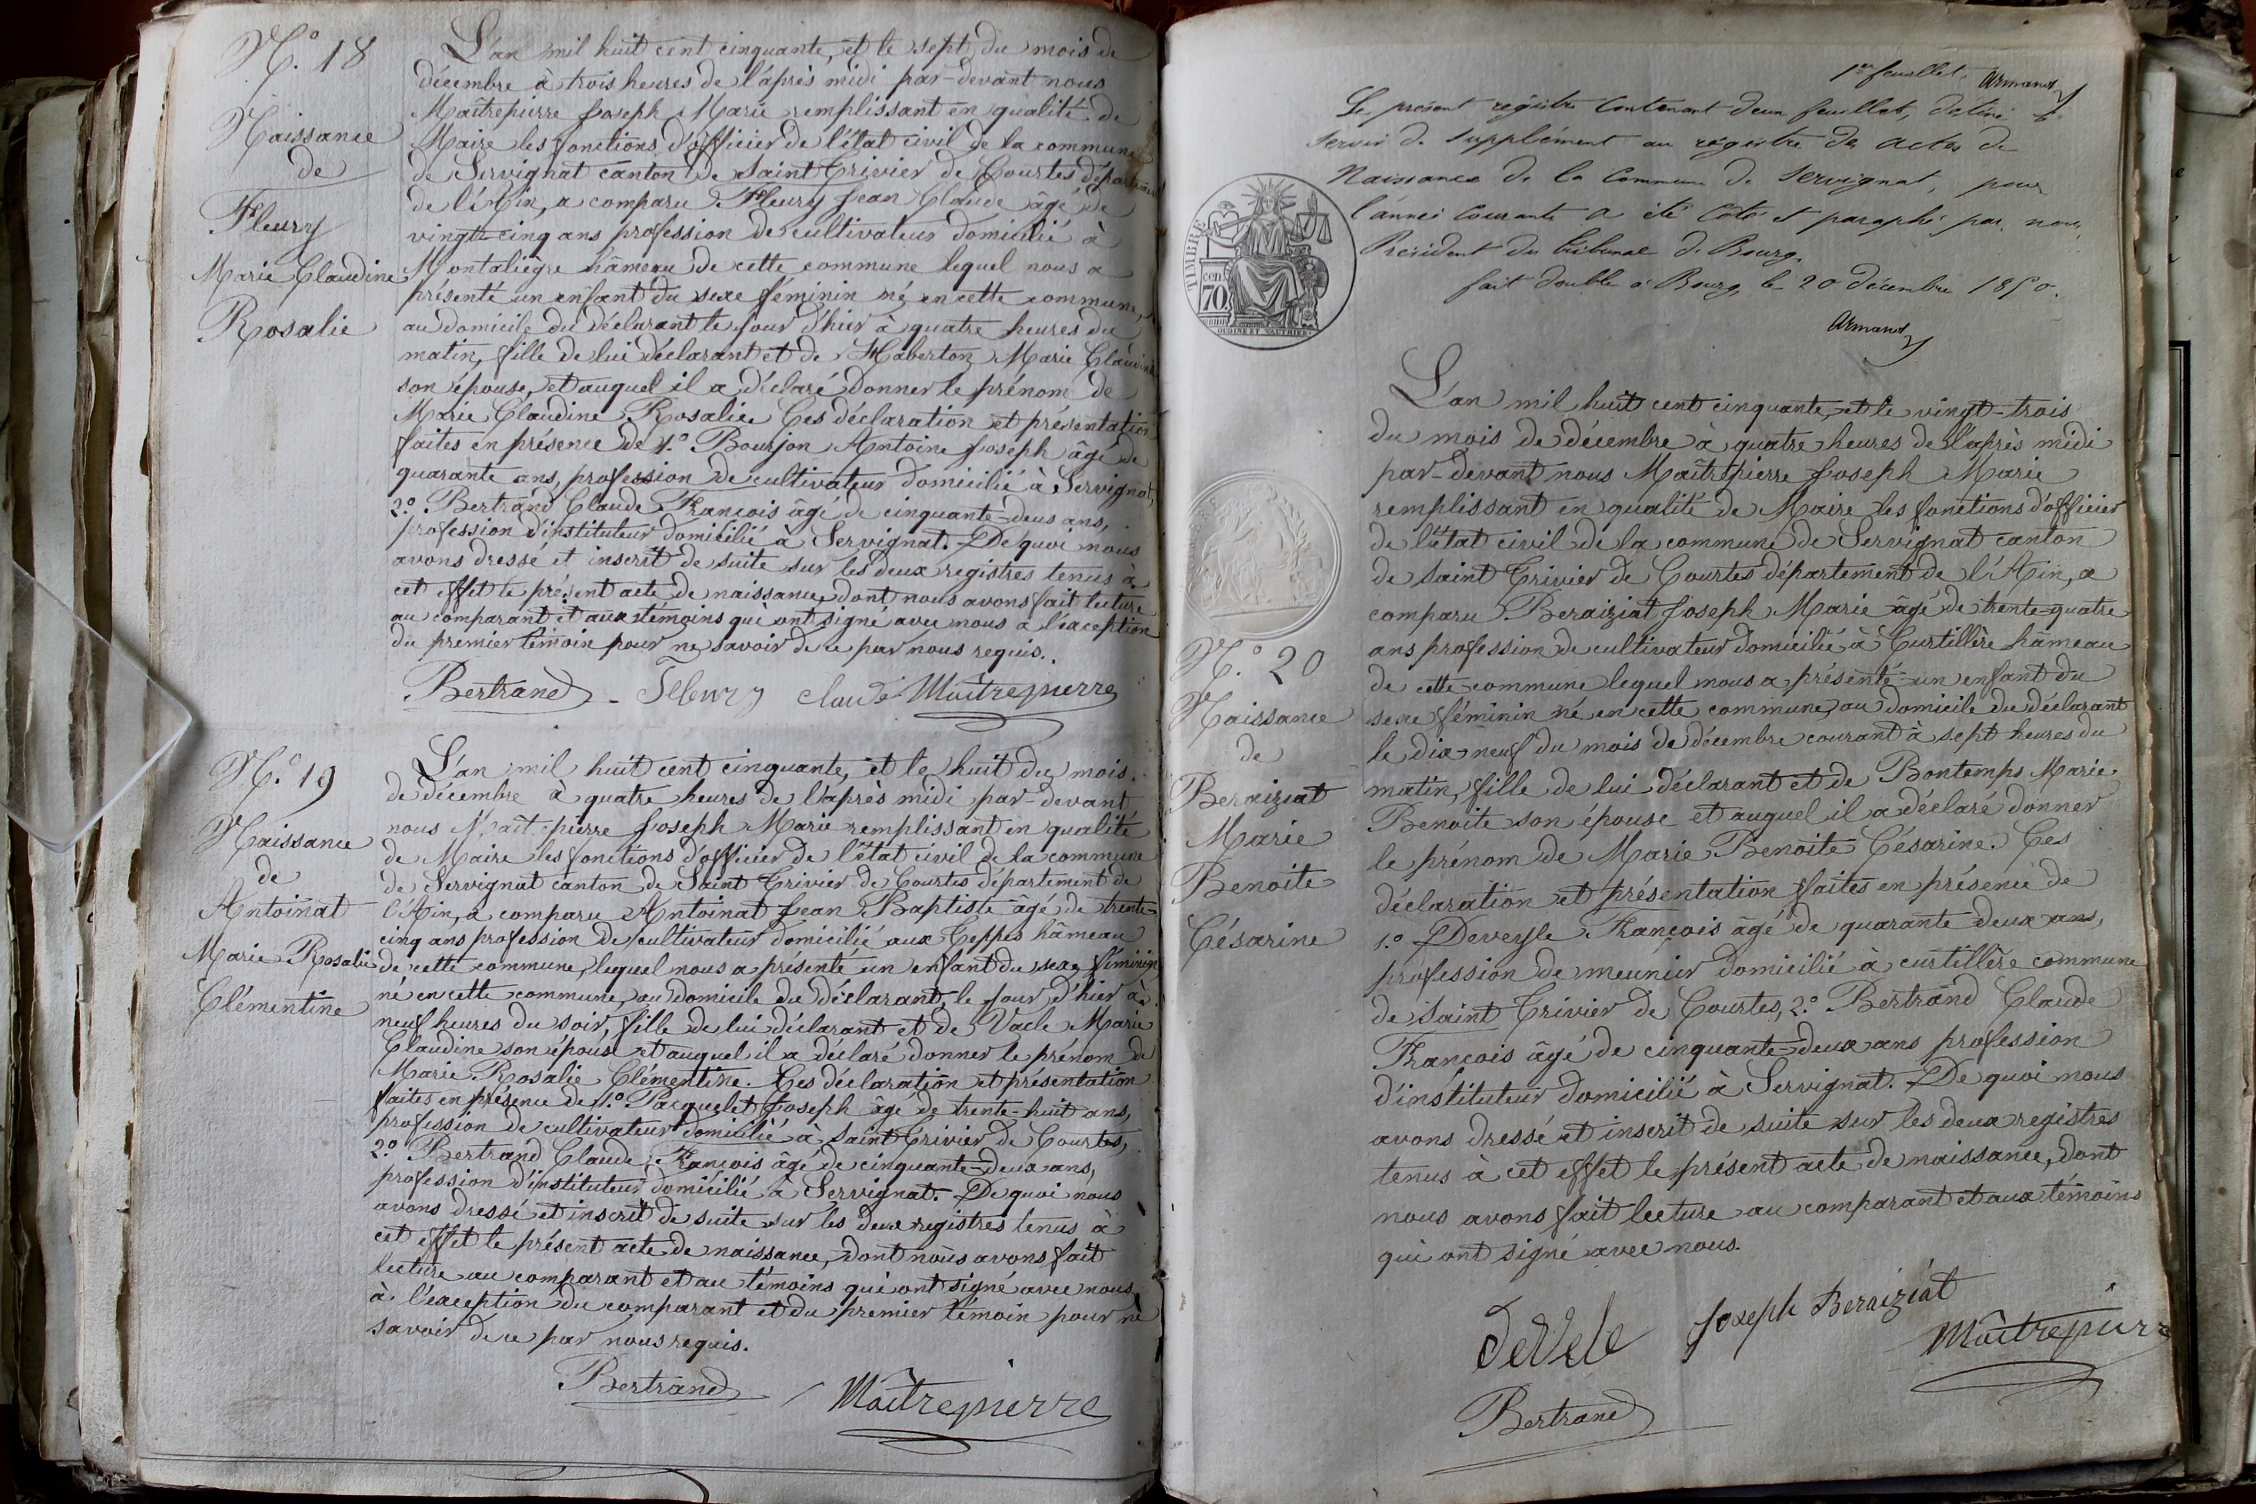 N.° 18
Naissance
de
Fleury
Marie Claudine
Rosalie
L'an mil huit cent cinquante, et le sept du mois de
décembre à trois heures de l'après midi par-devant nous
Maîtrepierre Joseph Marie remplissant en qualité de
Maire les fonctions d'officier de l'état civil de la commune
de Servignat canton de Saint Trivier de Courtes département
de l'Ain, a comparu Fleury Jean Claude âgé de
vingt-cinq ans profession de cultivateur domicilié à
Montaliègre hâmeau de cette commune lequel nous a
présenté un enfant du sexe féminin né en cette commune,
au domicile du déclarant le jour d'hier à quatre heures du
matin, fille de lui déclarant et de Haberton Marie Claudine
son épouse, et auquel il a déclaré donner le prénom de
Marie Claudine Rosalie. Ces déclaration et présentation
faites en présence de 1.° Bourjon Antoine Joseph âgé de
quarante ans, profession de cultivateur domicilié à Servignat,
2.° Bertrand Claude François âgé de cinquante-deus ans,
profession d'instituteur domicilié à Servignat. De quoi nous
avons dressé et inscrit de suite sur les deux registres tenus à
cet effet le présent acte de naissance, dont nous avons fait lecture
au comparant et aux témoins qui ont signé avec nous à l'exception
du premier témoin pour ne savoir de ce par nous requis.
Bertrand Fleury claude Maîtrepierre
N.° 19
Naissance
de
Antoinat
Marie Rosalie
Clémentine
L'an mil huit cent cinquante, et le huit du mois
de décembre à quatre heures de l'après midi par-devant
nous Maîtrepierre Joseph Marie remplissant en qualité
de Maire les fonctions d'officier de l'état civil de la commune
de Servignat canton de Saint Trivier de Courtes département de
l'Ain, a comparu Antoinat Jean Baptiste âgé de trente-
cinq ans profession de cultivateur domicilié aux Teppes hâmeau
de cette commune, lequel nous a présenté un enfant du sexe féminin
né en cette commune, au domicile du déclarant, le jour d'hier à
neuf heures du soir, fille de lui déclarant et de Vacle Marie
Claudine son épouse et auquel il a déclaré donner le prénom de
Marie Rosalie Clémentine. Ces déclaration et présentation
faites en présence de 1.° Pacquelet Joseph âgé de trente-huit ans,
profession de cultivateur domicilié à Saint Trivier de Courtes,
2.° Bertrand Claude François âgé de cinquante-deux ans,
profession d'instituteur domicilié à Servignat. De quoi nous
avons dressé et inscrit de suite sur les deux registres tenus à
cet effet le présent acte de naissance, dont nous avons fait
lecture au comparant et au témoins qui ont signé avec nous,
à l'exception du comparant et du premier témoin pour ne
savoir de ce par nous requis.
Bertrand Maîtrepierre
1er feuillet. Armand
Le présent registre contenant deux feuillets, destiné à
servir de supplément au registre des actes de
Naissance de la Commune de Servignat, pour
l'année courante a été coté et paraphé par nous,
Président du tribunal de Bourg.
fait double à Bourg, le 20 décembre 1850.
Armand
TIMBRE
cen
70
L'an mil huit cent cinquante, et le vingt-trois
du mois de décembre à quatre heures de l'après midi
par-devant nous Maîtrepierre Joseph Marie
remplissant en qualité de Maire les fonctions d'officier
de l'état civil de la commune de Servignat canton
de Saint Trivier de Courtes département de l'Ain, a
comparu Beraiziat Joseph Marie âgé de trente-quatre
ans profession de cultivateur domicilié à Curtillère hâmeau
de cette commune lequel nous a présenté un enfant du
sexe féminin né en cette commune, au domicile du déclarant
le dix-neuf du mois de décembre courant à sept heures du
matin, fille de lui déclarant et de Bontemps Marie
Benoite son épouse et auquel il a déclaré donner
le prénom de Marie Benoite Césarine. Ces
déclaration et présentation faites en présence de
1.° Deveyle François âgé de quarante deux ans,
profession de meûnier domicilié à curtillère commune
de Saint Trivier de Courtes, 2.° Bertrand Claude
François âgé de cinquante-deux ans profession
d'instituteur domicilié à Servignat. De quoi nous
avons dressé et inscrit de suite sur les deux registres
tenus à cet effet le présent acte de naissance, dont
nous avons fait lecture au comparant et aux témoins
qui ont signé avec nous.
N.° 20
Naissance
de
Beraiziat
Marie
Benoite
Césarine
DeVele Joseph Beraiziat Maîtrepierre
Bertrand